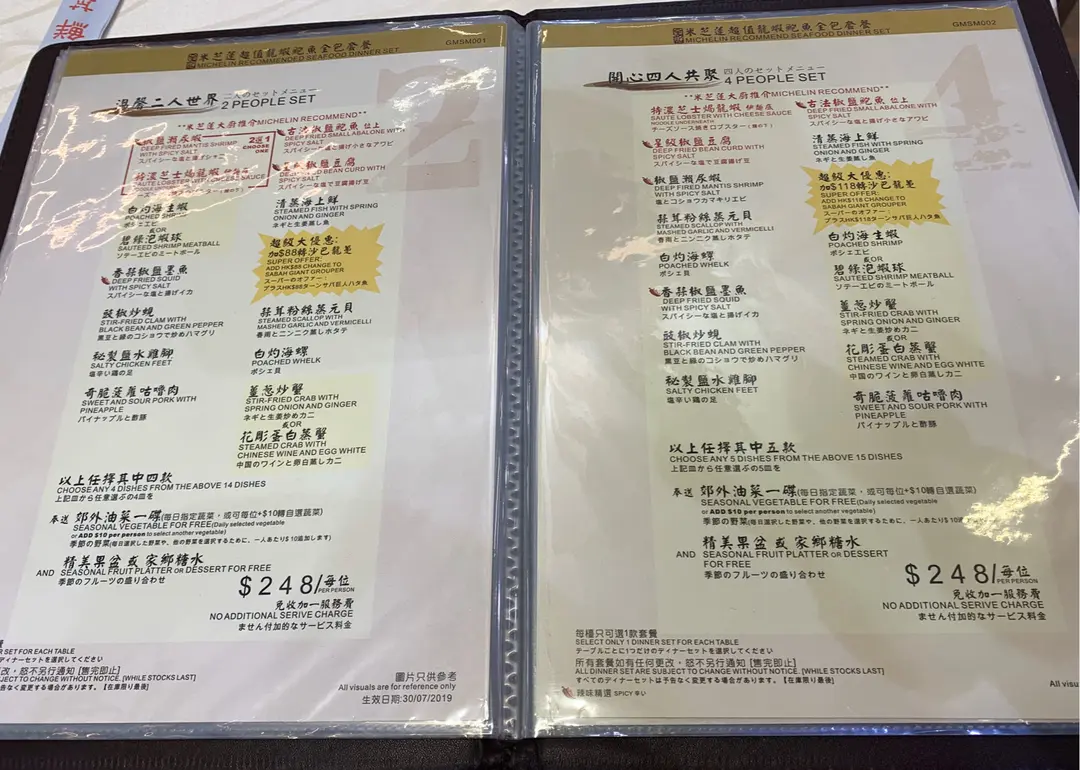 GMSM001
米芝蓮超值龍蝦鮑魚全包套餐
MICHELIN RECOMMENDED SEAFOOD DINNER SET
溫馨二人世界 二人のセットメニュー
2 PEOPLE SET
**米芝蓮大廚推介MICHELIN RECOMMEND**
椒鹽瀨尿蝦
DEEP FRIED MANTIS SHRIMP
WITH SPICY SALT
2選1
CHOOSE
ONE
特濃芝士焗龍蝦 伊麵底
SAUTE LOBSTER WITH CHEESE SAUCE
白灼海生蝦
POACHED SHRIMP
ボシエビ
或OR
碧綠泡蝦球
SAUTEED SHRIMP MEATBALL
ソテーエビのミートボール
香蒜椒鹽墨魚
DEEP FRIED SQUID
WITH SPICY SALT
スパイシーな塩と揚げイカ
豉椒炒蜆
STIR-FRIED CLAM WITH
BLACK BEAN AND GREEN PEPPER
黒豆と緑のコショウで炒めハマグリ
秘製鹽水雞腳
SALTY CHICKEN FEET
塩辛い鶏の足
香脆菠蘿咕嚕肉
SWEET AND SOUR PORK WITH
PINEAPPLE
パイナップルと酢豚
古法椒鹽鮑魚 仕上
DEEP FRIED SMALL ABALONE WITH
SPICY SALT
スパイシーな塩と揚げ小さなアワビ
星級椒鹽豆腐
DEEP FRIED BEAN CURD WITH
SPICY SALT
スパイシーな塩で豆腐揚げ豆
清蒸海上鮮
STEAMED FISH WITH SPRING
ONION AND GINGER
ネギと生姜蒸し魚
超級大優惠:
加$88轉沙巴龍躉
SUPER OFFER:
ADD HK$88 CHANGE TO
SABAH GIANT GROUPER
スーパーのオファー:
プラスHK$88ターンサバ巨人ハタ魚
蒜茸粉絲蒸元貝
STEAMED SCALLOP WITH
MASHED GARLIC AND VERMICELLI
春雨とニンニク蒸しホタテ
白灼海螺
POACHED WHELK
ボシエ貝
薑葱炒蟹
STIR-FRIED CRAB WITH
SPRING ONION AND GINGER
ネギと生姜炒めカニ
或OR
花彫蛋白蒸蟹
STEAMED CRAB WITH
CHINESE WINE AND EGG WHITE
中国のワインと卵白蒸しカニ
以上任擇其中四款
CHOOSE ANY 4 DISHES FROM THE ABOVE 14 DISHES
上記皿から任意選ぶの4皿を
奉送 郊外油菜一碟(每日指定蔬菜，或可每位+$10轉自選蔬菜)
SEASONAL VEGETABLE FOR FREE(Daily selected vegetable
or ADD $10 per person to select another vegetable)
季節の野菜(毎日選択した野菜や、他の野菜を選択するために、一人あたり$ 10追加します)
精美果盆 或 家鄉糖水
AND SEASONAL FRUIT PLATTER OR DESSERT FOR FREE
季節のフルーツの盛り合わせ
$248/每位
PER PERSON
免收加一服務費
NO ADDITIONAL SERIVE CHARGE
ません付加的なサービス料金
R SET FOR EACH TABLE
ディナーセットを選択してください
改，恕不另行通知 [售完即止]
JECT TO CHANGE WITHOUT NOTICE. [WHILE STOCKS LAST]
告なく変更する場合があります。【在庫限り最後】
圖片只供參考
All visuals are for reference only
生效日期:30/07/2019
GMSM002
米芝蓮超值龍蝦鮑魚全包套餐
MICHELIN RECOMMEND SEAFOOD DINNER SET
開心四人共聚 四人のセットメニュー
4 PEOPLE SET
**米芝蓮大廚推介MICHELIN RECOMMEND**
特濃芝士焗龍蝦 伊麵底
SAUTE LOBSTER WITH CHEESE SAUCE
NOODLE UNDERNEATH
チーズソース焼きロブスター
星級椒鹽豆腐
DEEP FRIED BEAN CURD WITH
SPICY SALT
スパイシーな塩で豆腐揚げ豆
椒鹽瀨尿蝦
DEEP FIRED MANTIS SHRIMP
WITH SPICY SALT
塩とコショウカマキリエビ
蒜茸粉絲蒸元貝
STEAMED SCALLOP WITH
MASHED GARLIC AND VERMICELLI
春雨とニンニク蒸しホタテ
白灼海螺
POACHED WHELK
ボシエ貝
香蒜椒鹽墨魚
DEEP FRIED SQUID
WITH SPICY SALT
スパイシーな塩と揚げイカ
豉椒炒蜆
STIR-FRIED CLAM WITH
BLACK BEAN AND GREEN PEPPER
黒豆と緑のコショウで炒めハマグリ
秘製鹽水雞腳
SALTY CHICKEN FEET
塩辛い鶏の足
古法椒鹽鮑魚 仕上
DEEP FRIED SMALL ABALONE WITH
SPICY SALT
スパイシーな塩と揚げ小さなアワビ
清蒸海上鮮
STEAMED FISH WITH SPRING
ONION AND GINGER
ネギと生姜蒸し魚
超級大優惠:
加$118轉沙巴龍躉
SUPER OFFER:
ADD HK$118 CHANGE TO
SABAH GIANT GROUPER
スーパーのオファー:
プラスHK$118ターンサバ巨人ハタ魚
白灼海生蝦
POACHED SHRIMP
ボシエビ
或OR
碧綠泡蝦球
SAUTEED SHRIMP MEATBALL
ソテーエビのミートボール
薑葱炒蟹
STIR-FRIED CRAB WITH
SPRING ONION AND GINGER
ネギと生姜炒めカニ
或OR
花彫蛋白蒸蟹
STEAMED CRAB WITH
CHINESE WINE AND EGG WHITE
中国のワインと卵白蒸しカニ
香脆菠蘿咕嚕肉
SWEET AND SOUR PORK WITH
PINEAPPLE
パイナップルと酢豚
以上任擇其中五款
CHOOSE ANY 5 DISHES FROM THE ABOVE 15 DISHES
上記皿から任意選ぶの5皿を
奉送 郊外油菜一碟(每日指定蔬菜，或可每位+$10轉自選蔬菜)
SEASONAL VEGETABLE FOR FREE(Daily selected vegetable
or ADD $10 per person to select another vegetable)
季節の野菜(毎日選択した野菜や、他の野菜を選択するために、一人あたり$ 10追加します)
精美果盆 或 家鄉糖水
AND SEASONAL FRUIT PLATTER OR DESSERT
FOR FREE
季節のフルーツの盛り合わせ
$248/每位
PER PERSON
免收加一服務費
NO ADDITIONAL SERIVE CHARGE
ません付加的なサービス料金
每檯只可選1款套餐
SELECT ONLY 1 DINNER SET FOR EACH TABLE
テーブルごとに1つだけのディナーセットを選択してください
所有套餐如有任何更改，恕不另行通知 [售完即止]
ALL DINNER SET ARE SUBJECT TO CHANGE WITHOUT NOTICE. [WHILE STOCKS LAST]
すべてのディナーセットは予告なく変更する場合があります。【在庫限り最後】
辣味精選 SPICY 辛い
All visu